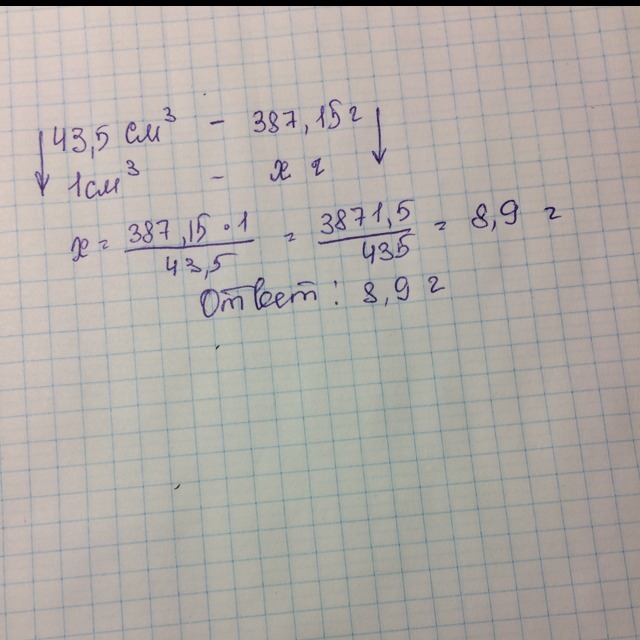 43,5 см³ - 387,15 г
1 см³ - x г
x = 387,15 · 1 / 43,5 = 3871,5 / 435 = 8,9 г
Ответ: 8,9 г